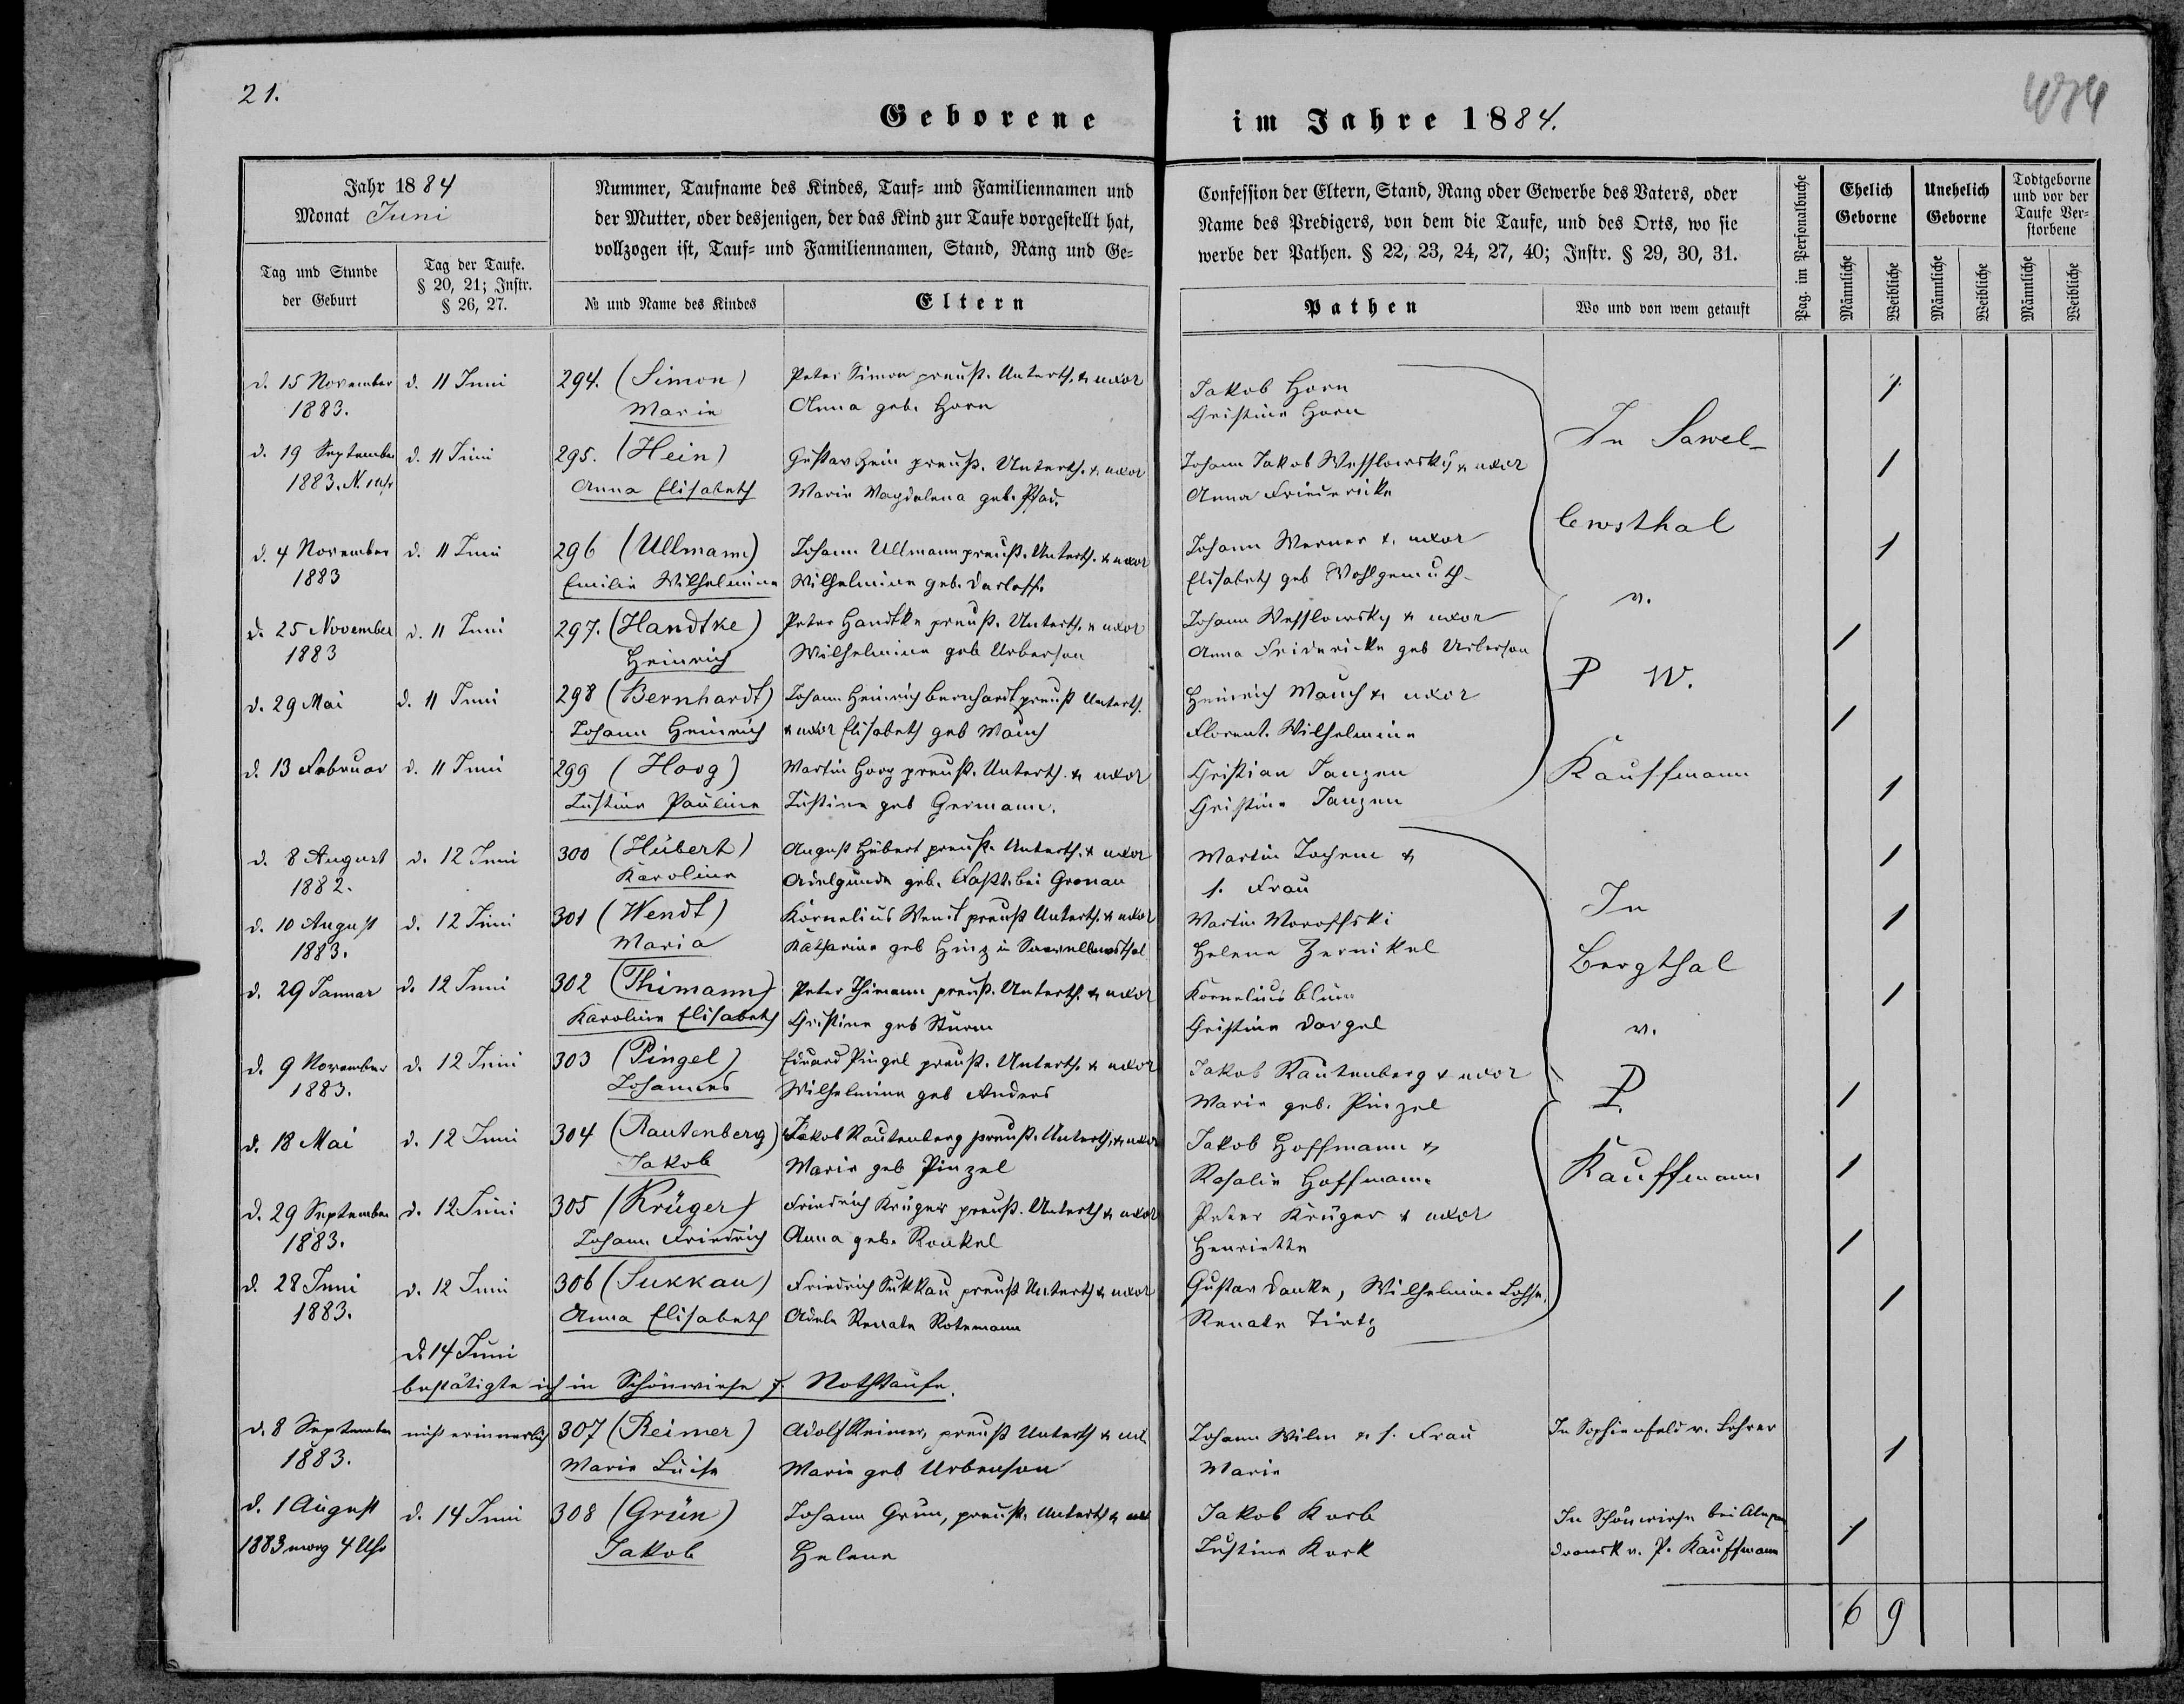 21.
Geborene im Jahre 1884.
Jahr 1884
Monat Juni
Tag und Stunde der Geburt
Tag der Taufe. § 20, 21; Instr. § 26, 27.
Nummer, Taufname des Kindes, Tauf- und Familiennamen und
der Mutter, oder desjenigen, der das Kind zur Taufe vorgestellt hat,
vollzogen ist, Tauf- und Familiennamen, Stand, Rang und Ge-
№ und Name des Kindes
Eltern
Confession der Eltern, Stand, Rang oder Gewerbe des Vaters, oder
Name des Predigers, von dem die Taufe, und des Orts, wo sie
werbe der Pathen. § 22, 23, 24, 27, 40; Instr. § 29, 30, 31.
Pathen
Wo und von wem getauft
Pag. im Personalbuche
Ehelich Geborne
Unehelich Geborne
Todtgeborne und vor der Taufe Verstorbene
Männliche Weibliche Männliche Weibliche Männliche Weibliche
d. 15 November d. 11 Juni 294. (Simon) Peter Simon preuß. Unterth. & uxor Jakob Horn 1
1883. Marie Anna geb. Horn Christine Horn
d. 19 September d. 11 Juni 295. (Hein) Gustav Hein preuß. Unterth. & uxor Johann Jakob Wesslowsky & uxor 1
1883. N. Anna Elisabeth Marie Magdalena geb. Anna Friedericke
In Sawel-
lewsthal
v.
P W.
Kauffmann
d. 4 November d. 11 Juni 296 (Ullmann) Johann Ullmann preuß. Unterth. & uxor Johann Werner & uxor 1
1883 Emilie Wilhelmine Wilhelmine geb. Elisabeth geb Wohlgemuth
d. 25 November d. 11 Juni 297. (Handtke) Peter Handtke preuß. Unterth. & uxor Johann Wesslowsky & uxor 1
1883 Heinrich Wilhelmine geb Urbenson Anna Fridericke geb Urbenson
d. 29 Mai d. 11 Juni 298 (Bernhardt) Johann Heinrich Bernhardt preuß Unterth. Heinrich Mauch & uxor 1
Johann Heinrich & uxor Elisabeth geb Mauch Florent. Wilhelmine
d. 13 Februar d. 11 Juni 299 (Hoog) Martin Hoog preuß. Unterth. & uxor Christian Janzen 1
Justine Pauline Justine geb Germann. Christine Janzen
d. 8 August d. 12 Juni 300 (Hübert) August Hübert preuß. Unterth. & uxor Martin Jochem & 1
1882. Karoline Adelgunde geb. Fast bei Gronau s. Frau
In
Bergthal
v.
P.
Kauffmann
d. 10 August d. 12 Juni 301 (Wendt) Kornelius Wendt preuß Unterth. & uxor Martin Moroffski 1
1883. Maria Katharine geb Hinz in Sawellewsthal Helene Zernikel
d. 29 Januar d. 12 Juni 302 (Thimann) Peter Thimann preuß. Unterth. & uxor Kornelius Blum 1
Karoline Elisabeth Christine geb Sturm Christine Dargel
d. 9 November d. 12 Juni 303 (Pingel) Eduard Pingel preuß. Unterth. & uxor Jakob Rautenberg & uxor 1
1883. Johannes Wilhelmine geb Anders Marie geb. Pinzel
d. 18 Mai d. 12 Juni 304 (Rautenberg) Jakob Rautenberg preuß. Unterth. & uxor Jakob Hoffmann & 1
Jakob Marie geb Pinzel Rosalie Hoffmann
d. 29 September d. 12 Juni 305 (Krüger) Friedrich Krüger preuß. Unterth & uxor Peter Krüger & uxor 1
1883. Johann Friedrich Anna geb. Ronkel Henriette
d. 28 Juni d. 12 Juni 306 (Sukkau) Friedrich Sukkau preuß Unterth & uxor Gustav Danke, Wilhelmine 1
1883. Anna Elisabeth Adele Renate Rotemann Renate Tietz
d. 14 Juni
bestätigte ich in Schönwiese f. Nothtaufe.
d. 8 September nicht erinnerlich 307 (Reimer) Adolf Reimer, preuß Unterth & ux. Johann Wilm & s. Frau In Sophienfeld v. Lehrer 1
1883. Marie Luise Marie geb Urbenson Marie
d. 1 August d. 14 Juni 308 (Grün) Johann Grün, preuß. Unterth & ux Jakob Korb In Schönwiese bei Alexan 1
1883 morg 4 Uhr Jakob Helene Justine Kork drowsk v. P. Kauffmann
6 9